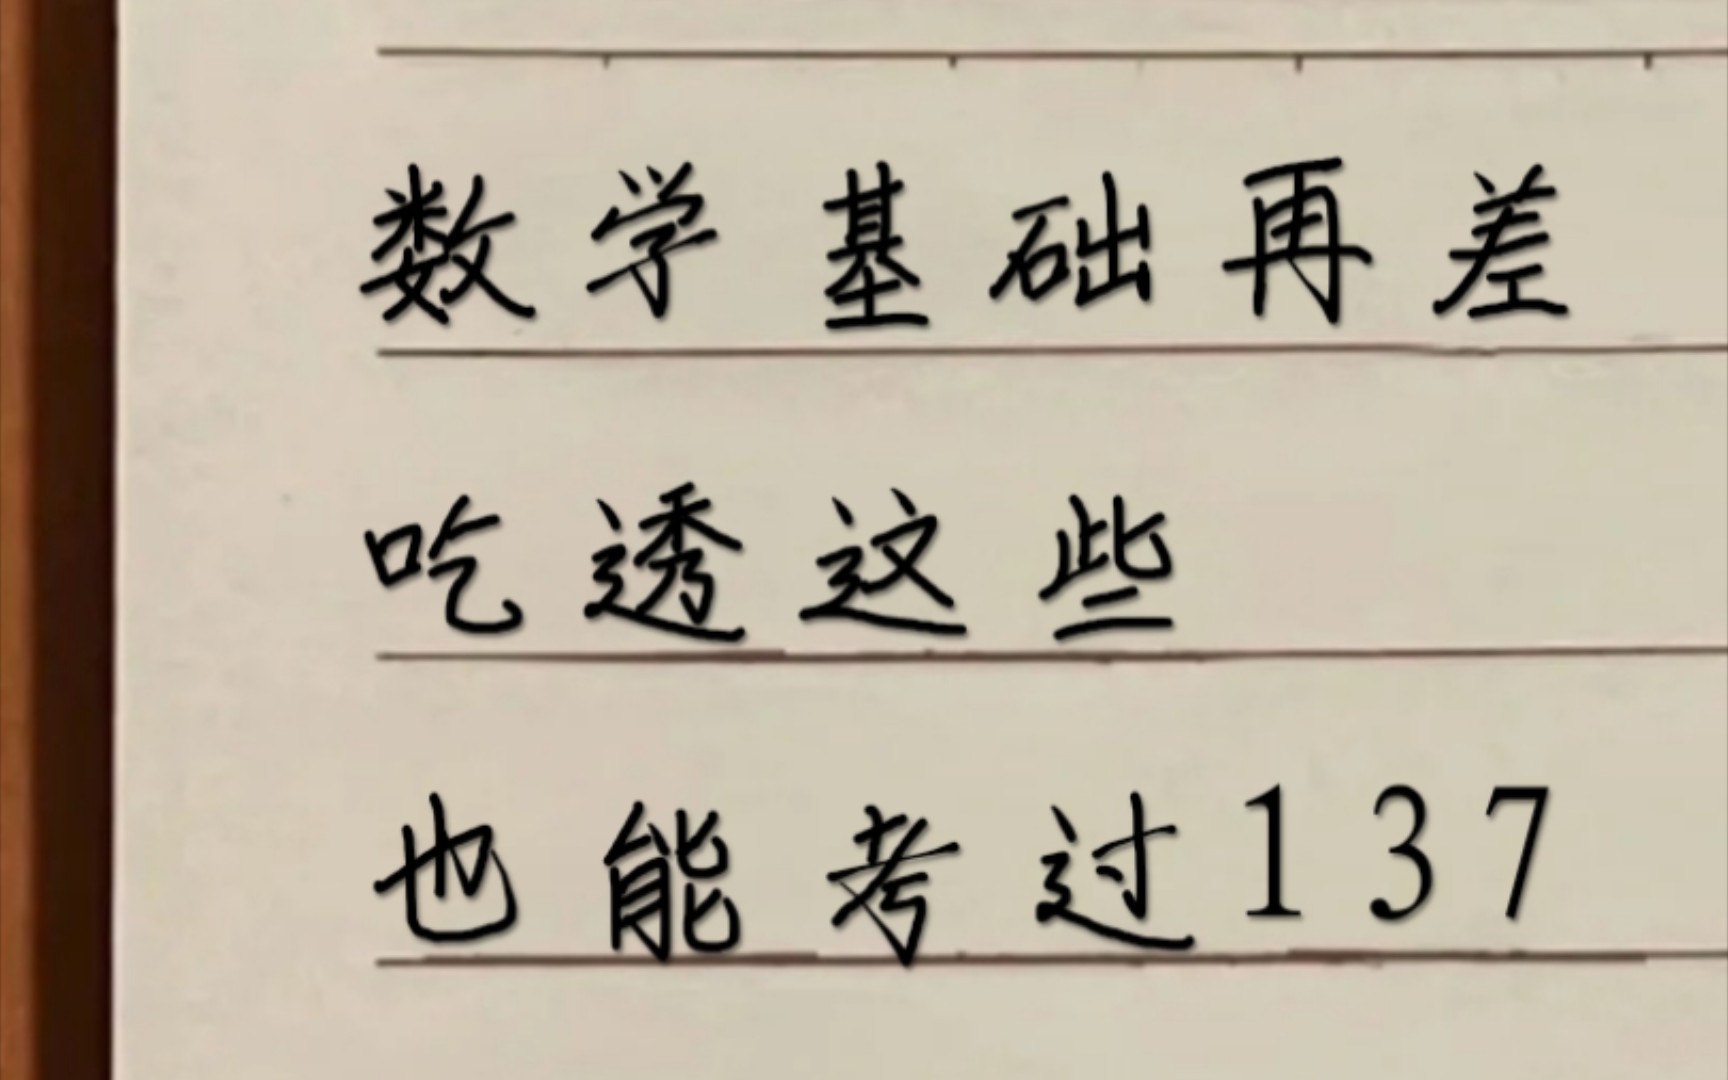 数学基础再差
吃透这些
也能考过137